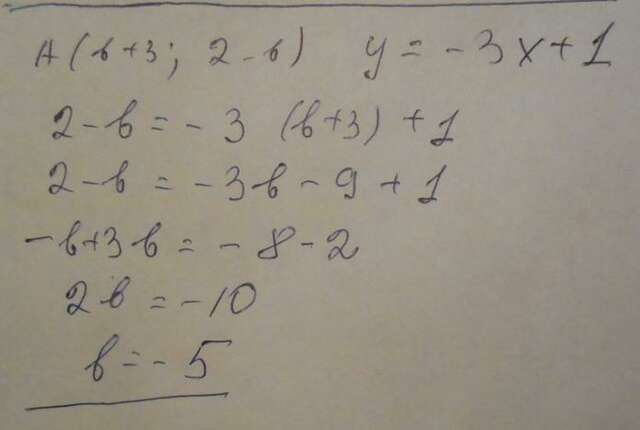 A(b+3; 2-b) y = -3x+1
2-b = -3 (b+3) +1
2-b = -3b-9+1
-b+3b = -8-2
2b = -10
b = -5